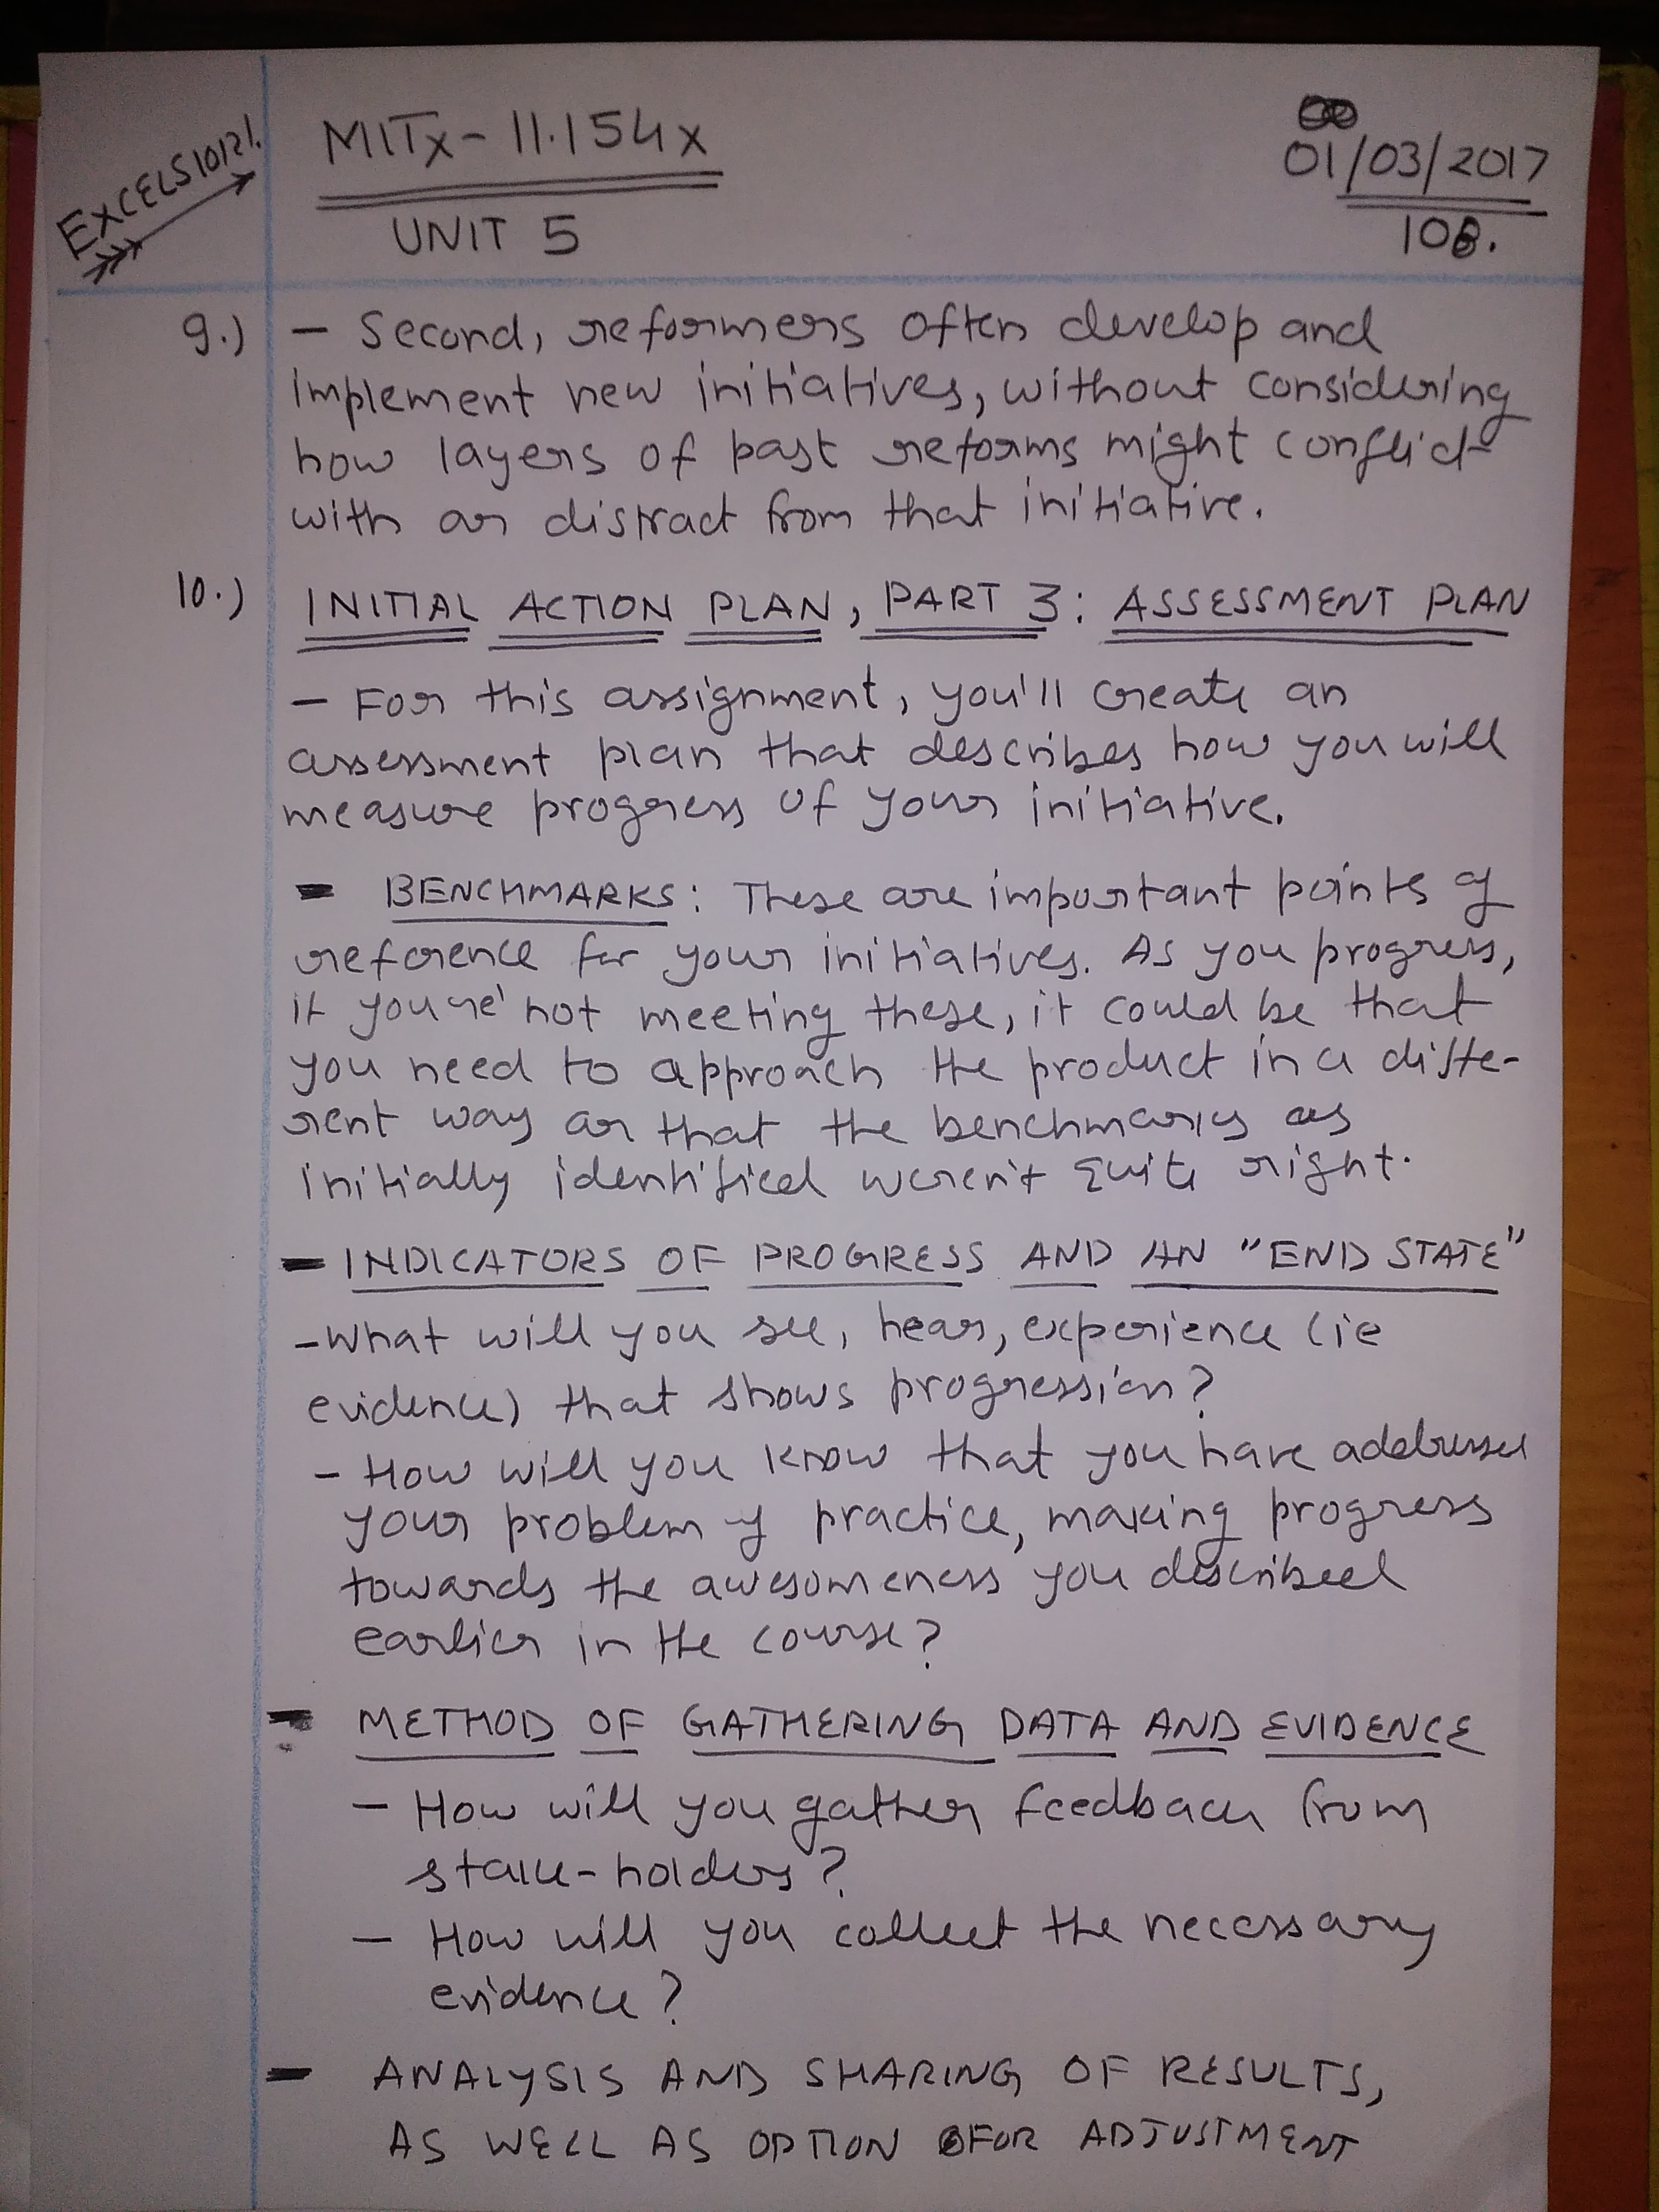 EXCELSIOR2!
MITx - 11.154x
UNIT 5
01/03/2017
108.
9.) - Second, reformers often develop and
implement new initiatives, without considering
how layers of past reforms might conflict
with or distract from that initiative.
10.) INITIAL ACTION PLAN, PART 3: ASSESSMENT PLAN
- For this assignment, you'll create an
assessment plan that describes how you will
measure progress of your initiative.
- BENCHMARKS: These are important points of
reference for your initiatives. As you progress,
if you're not meeting these, it could be that
you need to approach the product in a diffe-
rent way or that the benchmarks as
initially identified weren't quite right.
- INDICATORS OF PROGRESS AND AN "END STATE"
- What will you see, hear, experience (ie
evidence) that shows progression?
- How will you know that you have addressed
your problem of practice, making progress
towards the awesomeness you described
earlier in the course?
- METHOD OF GATHERING DATA AND EVIDENCE
- How will you gather feedback from
stake-holders?
- How will you collect the necessary
evidence?
- ANALYSIS AND SHARING OF RESULTS,
AS WELL AS OPTION FOR ADJUSTMENT